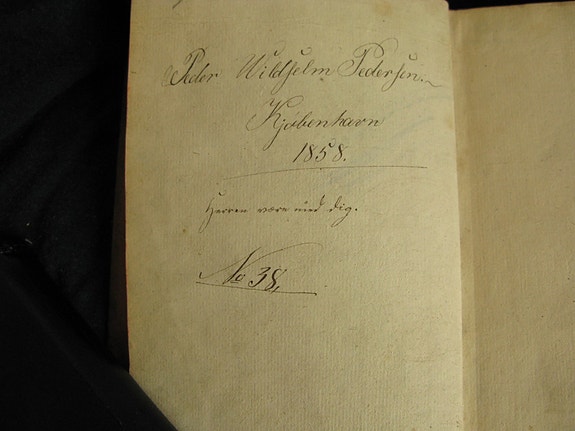 Peder Wildhelm Pedersen.
Kjøbenhavn
1858.
Herren være med dig.
No 38,